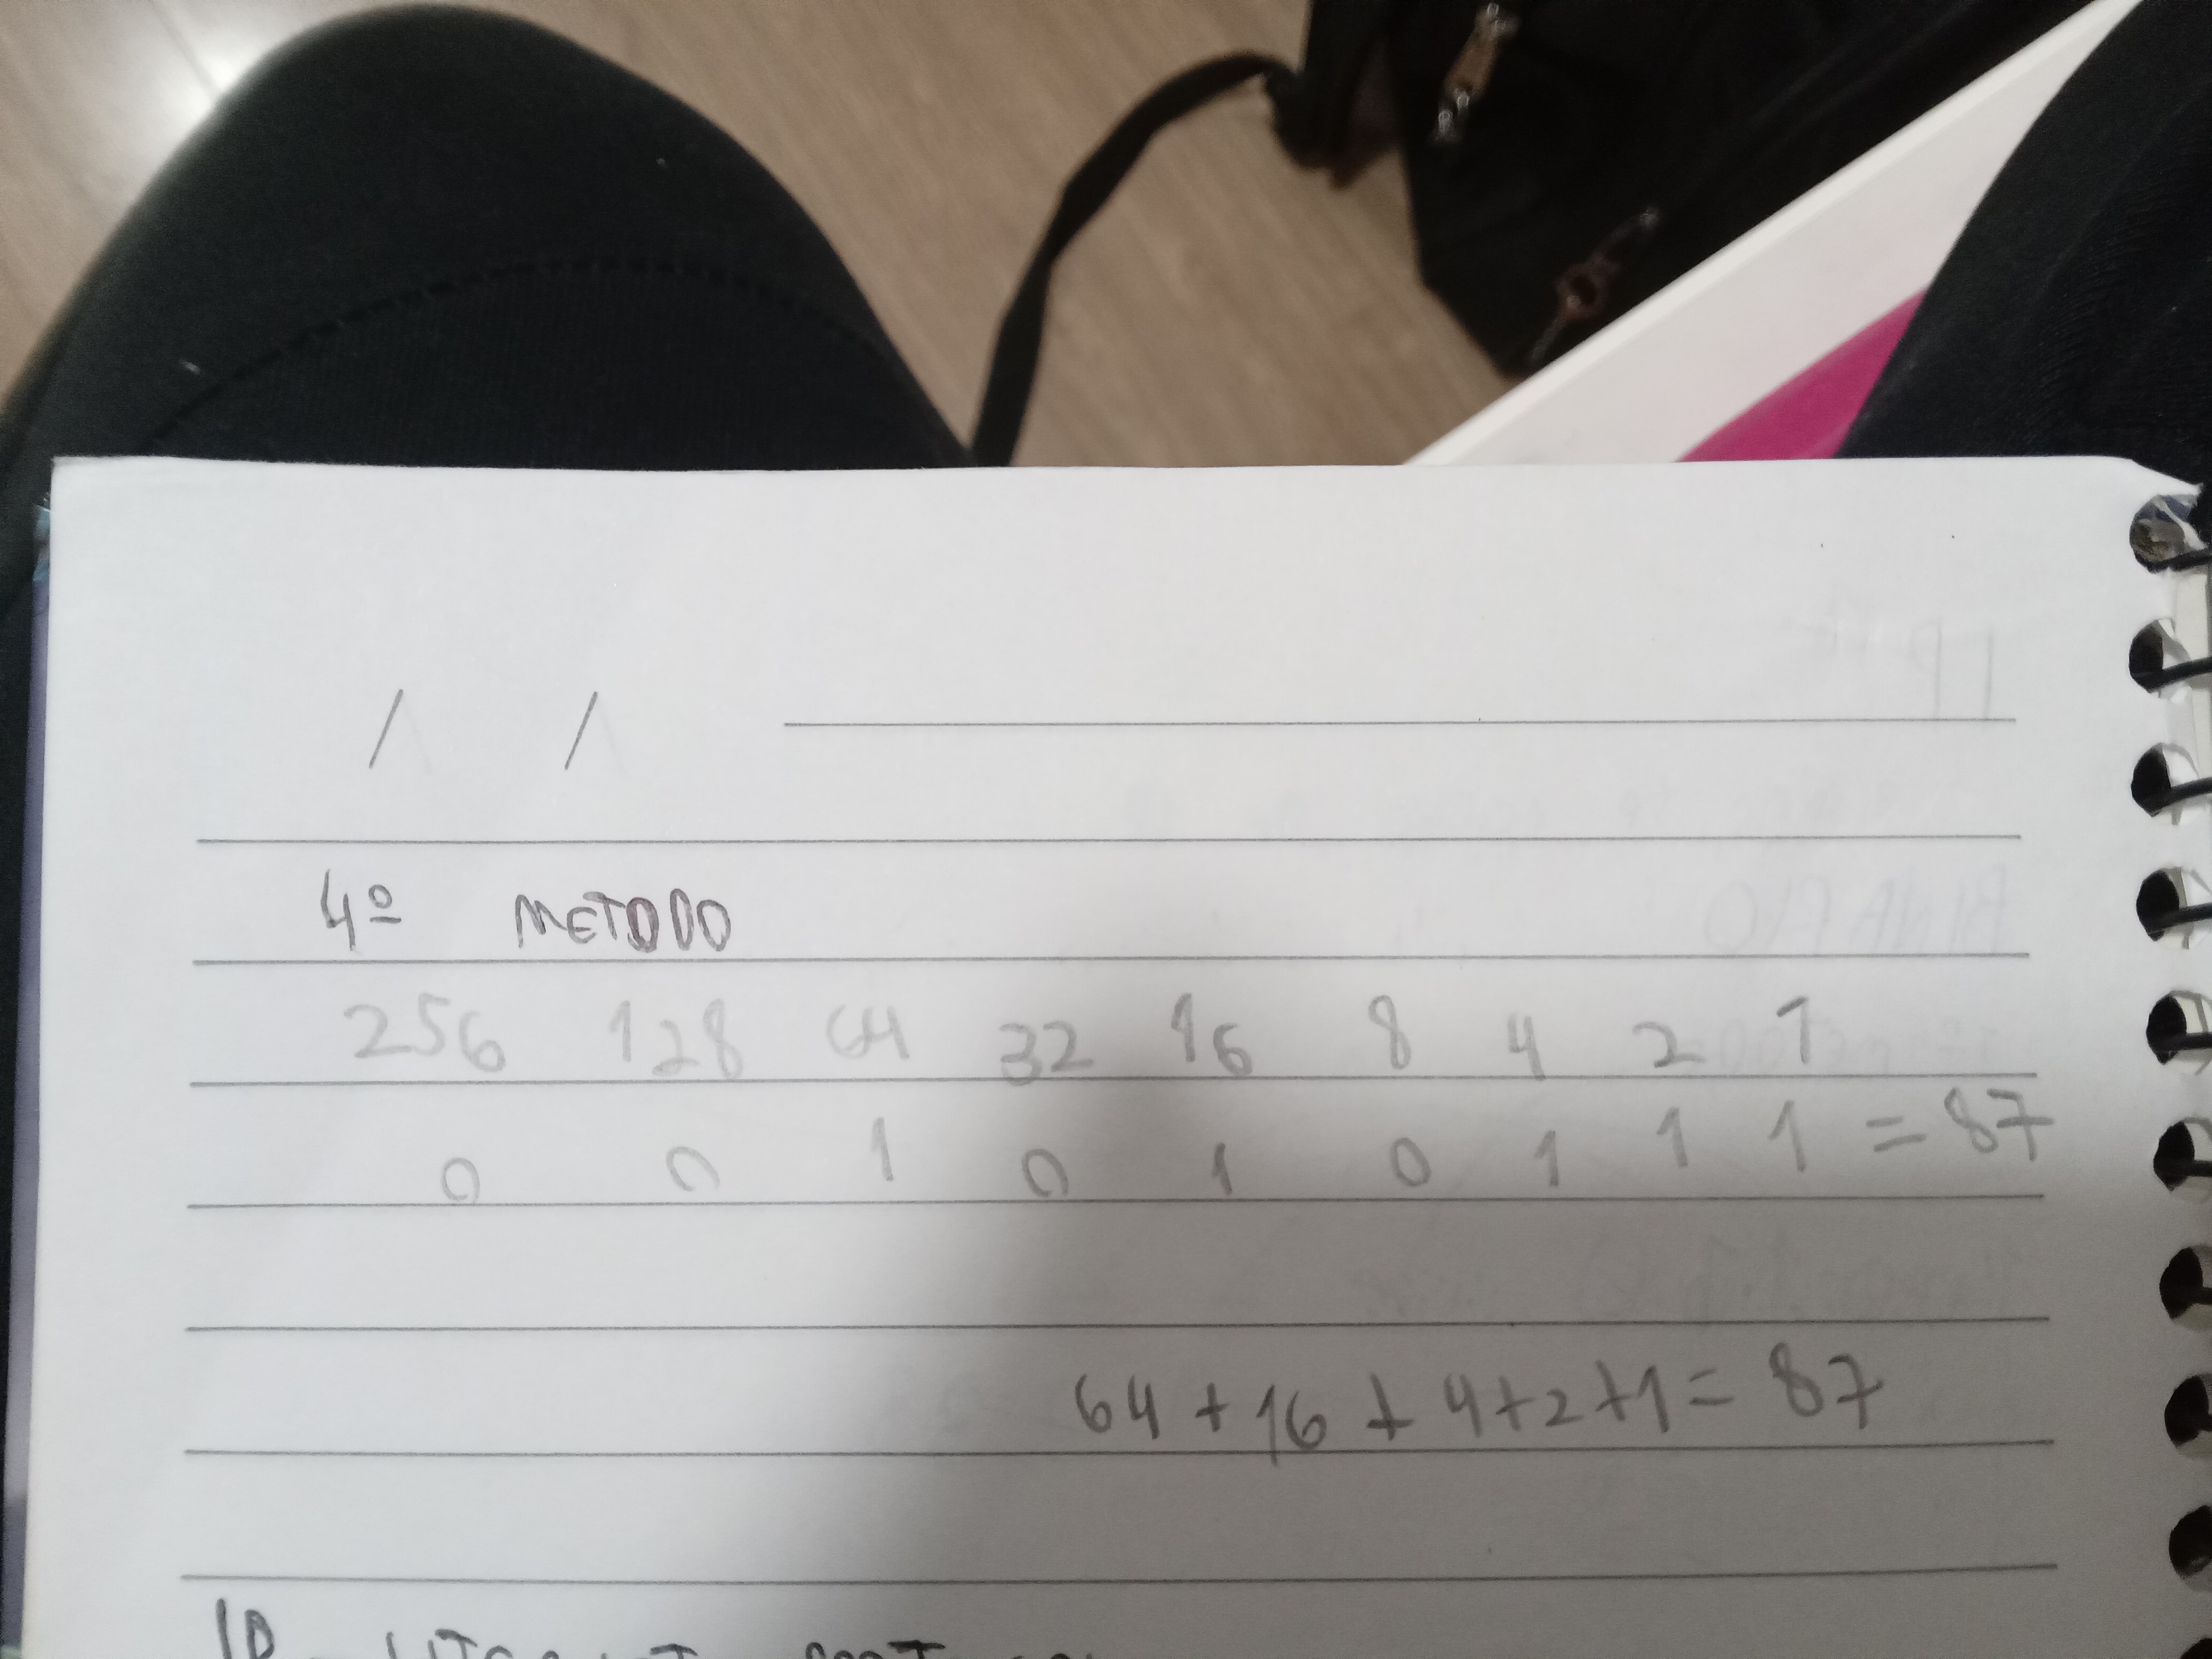 / /
4º METODO
256 128 64 32 16 8 4 2 1
0 0 1 0 1 0 1 1 1 = 87
64 + 16 + 4+2+1= 87